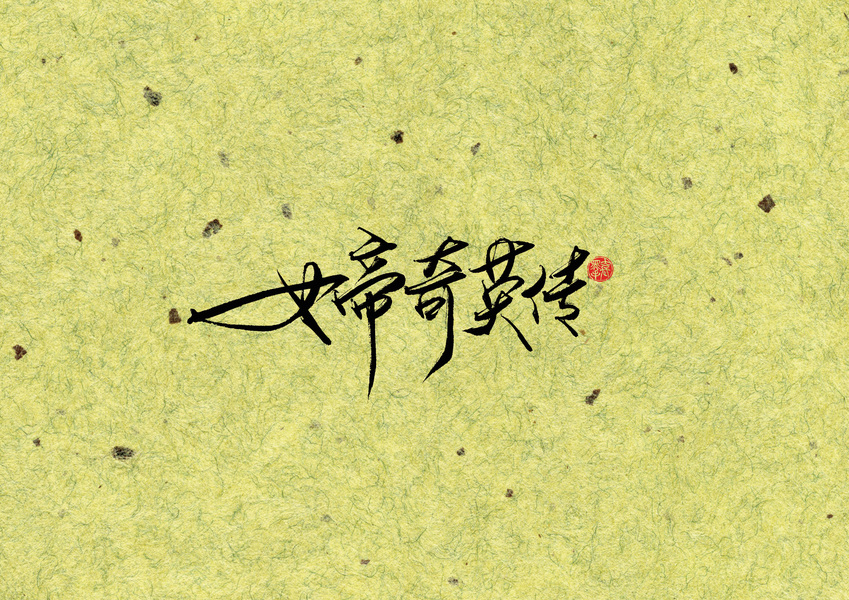 女帝奇英传